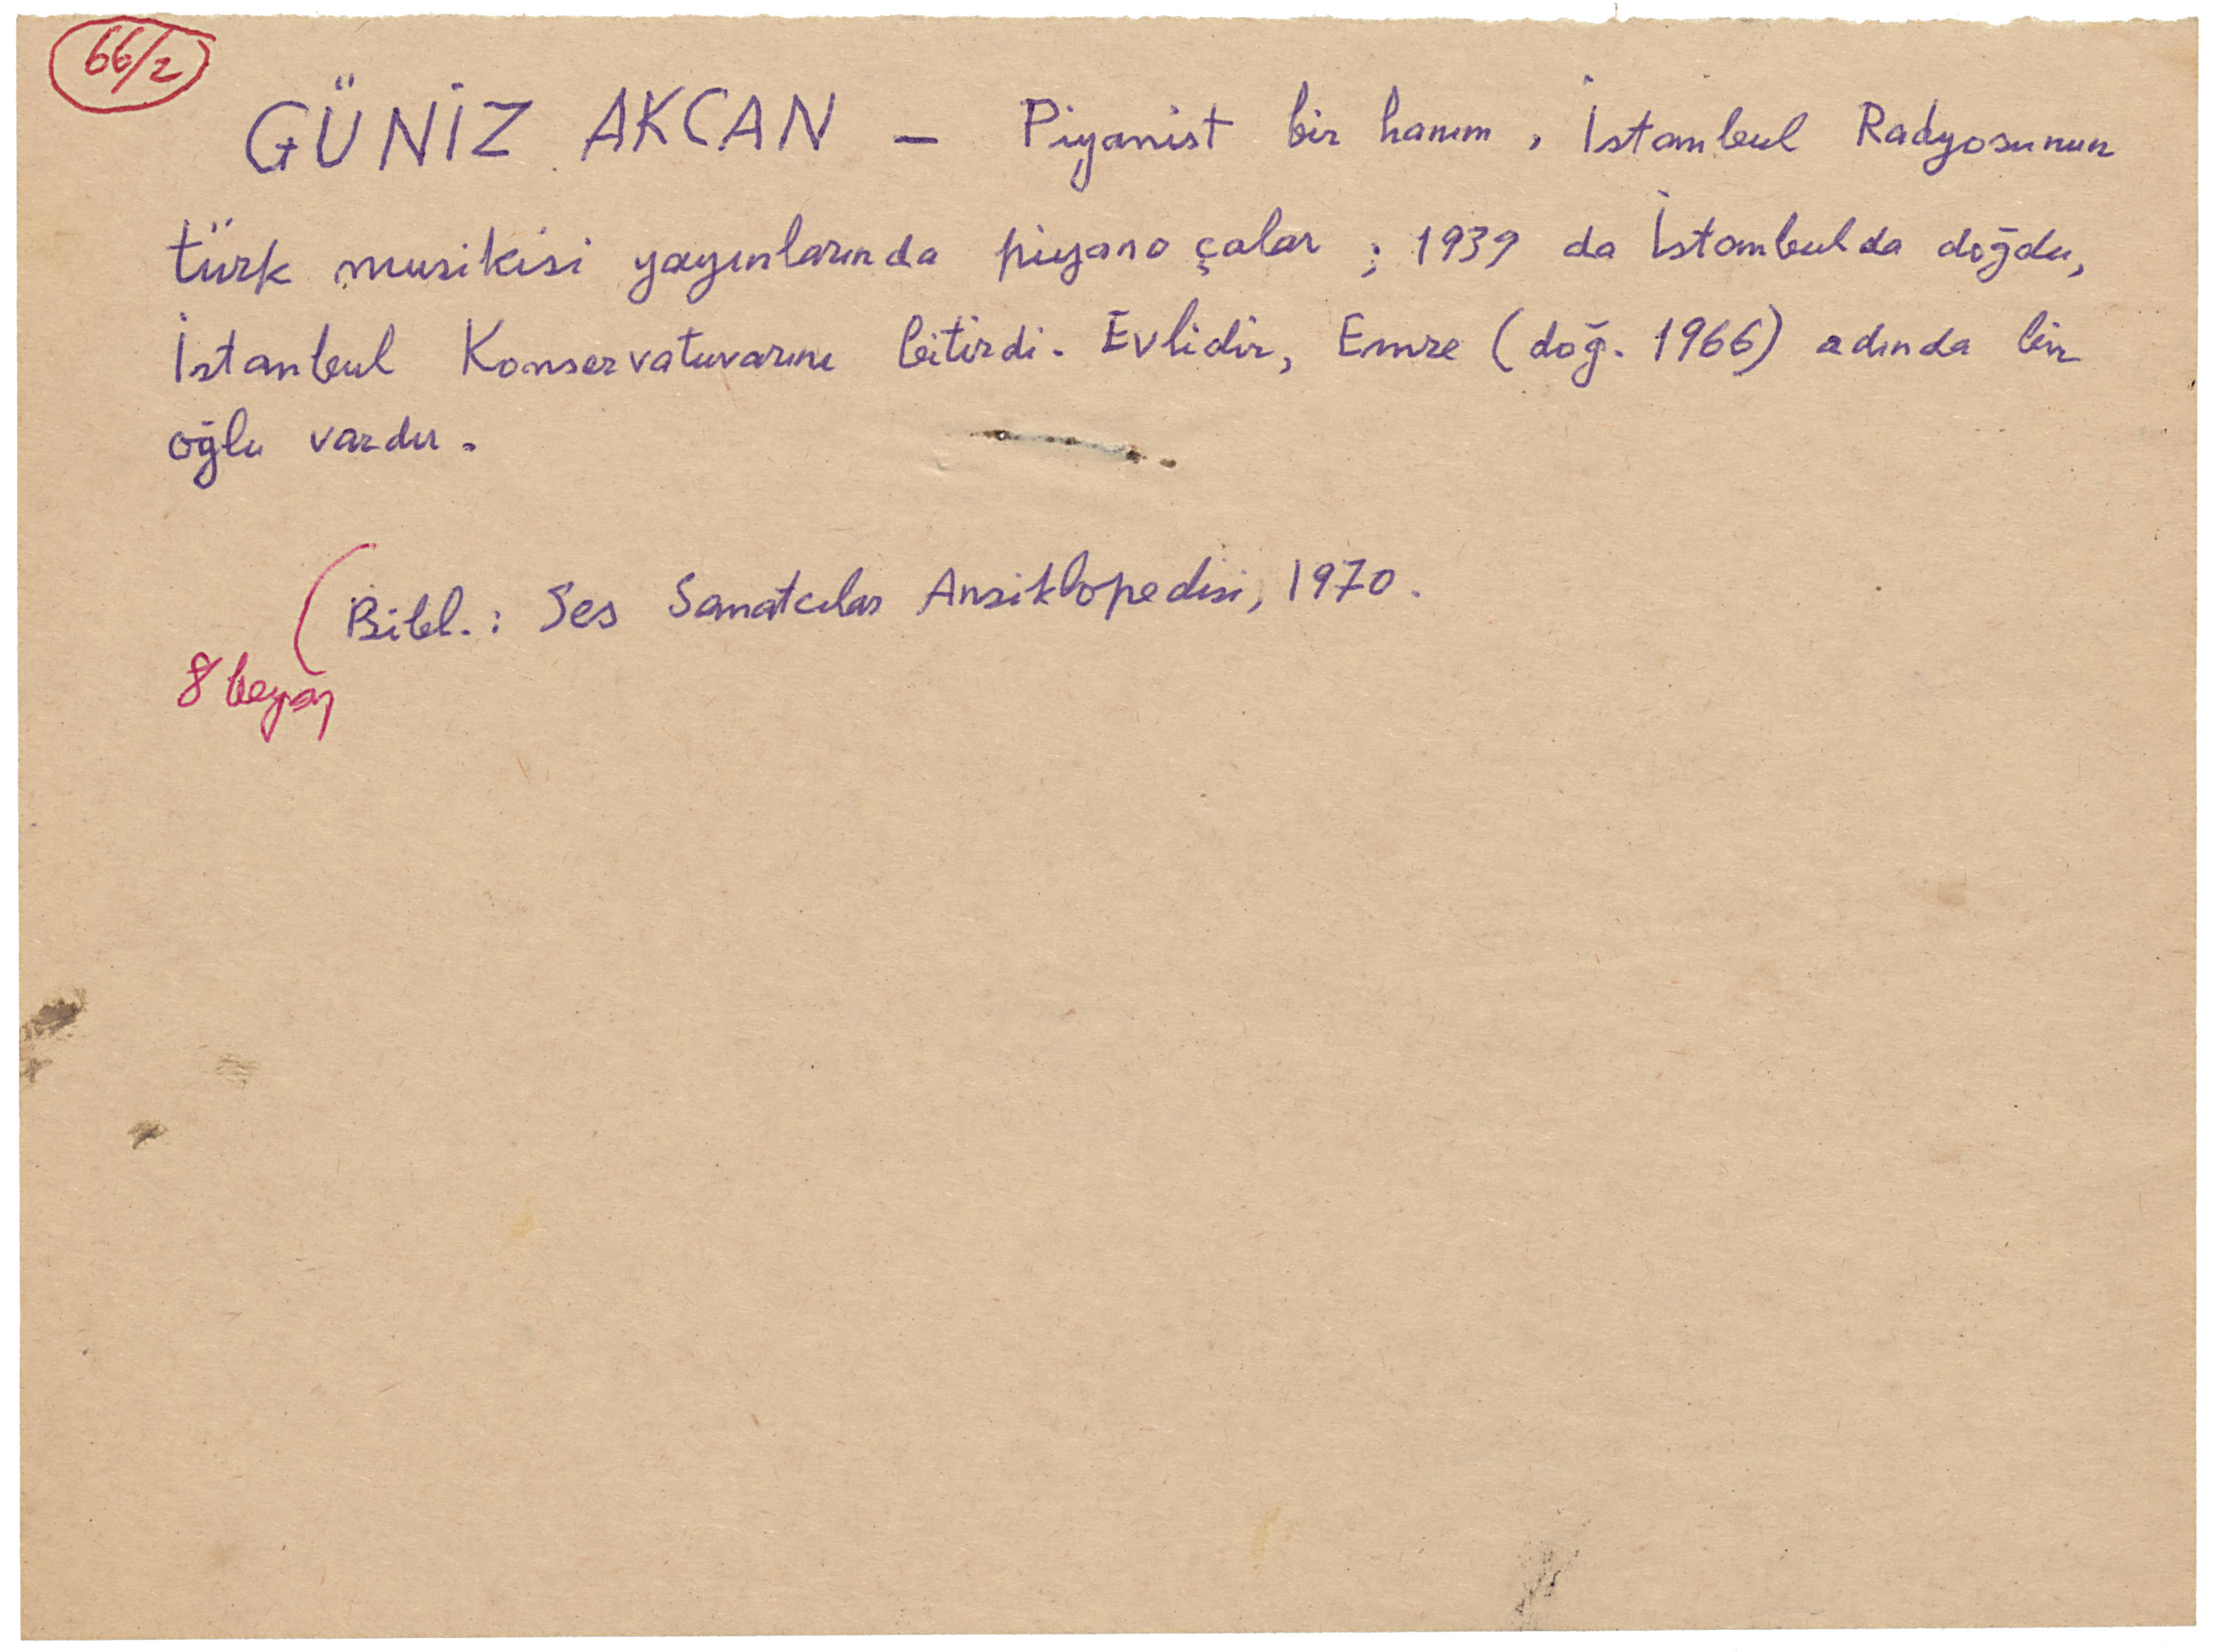 66/2
GÜNİZ AKCAN — Piyanist bir hanım, İstanbul Radyosunun
türk musikisi yayınlarında piyano çalar ; 1939 da İstanbulda doğdu,
İstanbul Konservatuvarını bitirdi. Evlidir, Emre (doğ. 1966) adında bir
oğlu vardır.
(Bibl.: Ses Sanatcılar Ansiklopedisi, 1970.
8 beyaz